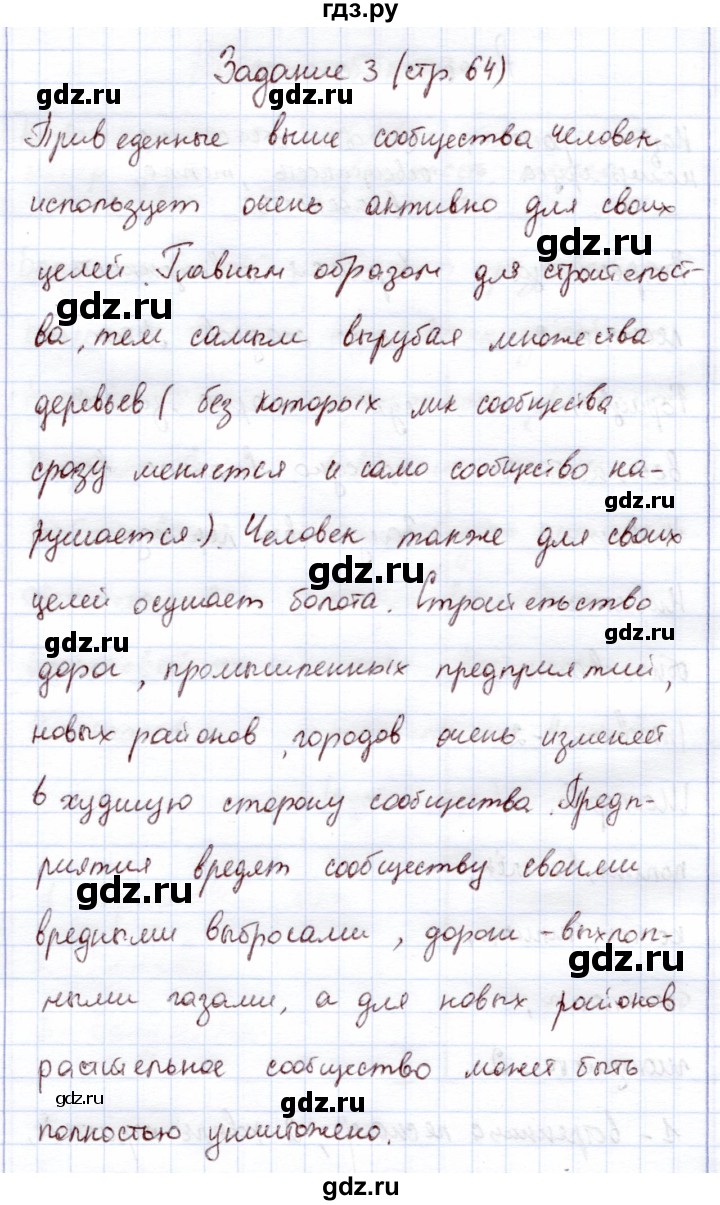 гдз.ру
Задание 3 (стр. 64)
gdz.ru gdz.ru
Приведенные выше сообщества человек
gdz.ru
использует очень активно для своих
gdz.ru
целей. Главным образом для строительст-
gdz.ru
ва, тем самым вырубая множества
gdz.ru
деревьев ( без которых лик сообщества
gdz.ru
сразу меняется и само сообщество на-
gdz.ru
рушается.). Человек также для своих
gdz.ru
целей осушает болота. Строительство
gdz.ru gdz.ru
дорог, промышленных предприятий,
новых районов, городов очень изменяет
gdz.ru
в худшую сторону сообщества. Предп-
gdz.ru
риятия вредят сообществу своими
gdz.ru
вредными выбросами, дороги - выхлоп-
gdz.ru
ными газами, а для новых районов
растительное сообщество может быть
gdz.ru gdz.ru
полностью уничтожено.
gdz.ru